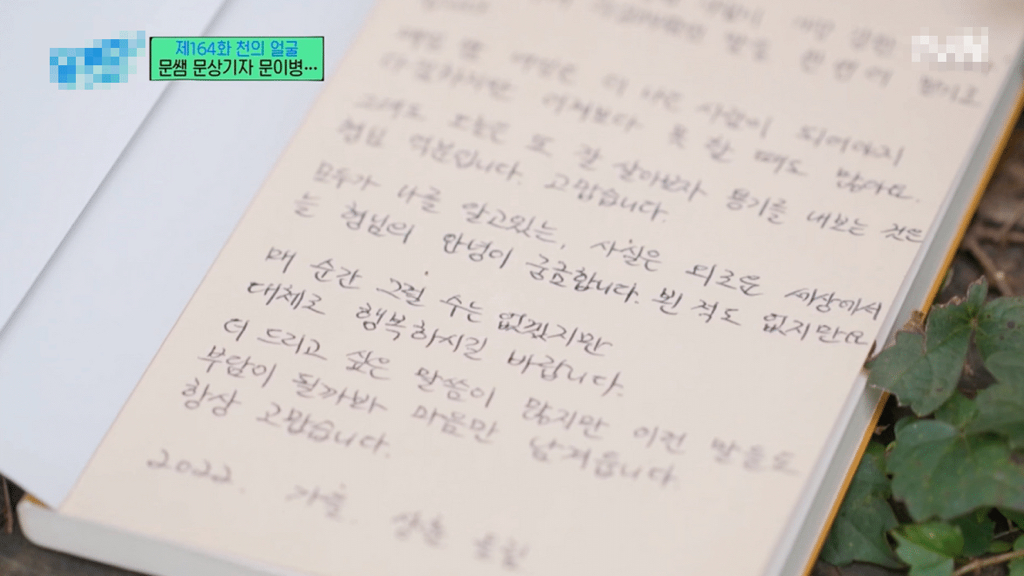 제164화 천의 얼굴
문쌤 문상기자 문이병…
tvN
매일 더 나은 사람이 되어야지
다짐하지만 어제보다 못 할 때도 많아요.
그래도 오늘은 또 잘 살아보자 용기를 내보는 것은
형님 덕분입니다. 고맙습니다.
모두가 나를 알고있는, 사실은 외로운 세상에서
는 형님의 안녕이 궁금합니다. 뵌 적도 없지만요
매 순간 그럴 수는 없겠지만
대체로 행복하시길 바랍니다.
더 드리고 싶은 말씀이 많지만 이런 말들도
부담이 될까봐 마음만 남겨둡니다.
항상 고맙습니다.
2022. 가을.